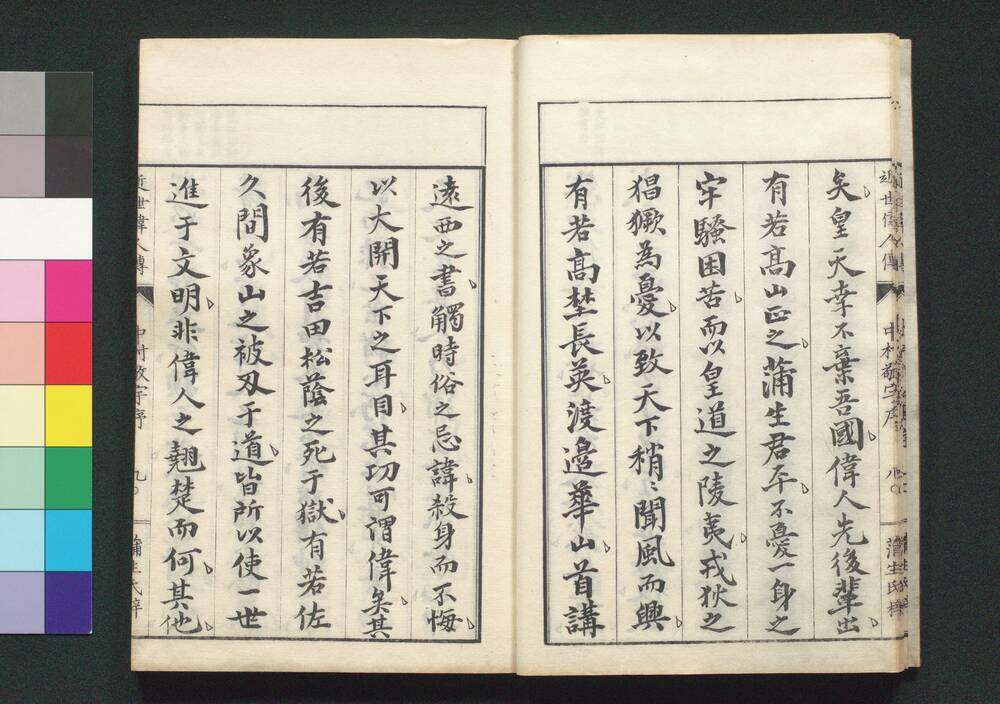 矣皇天幸不棄吾國偉人先後輩出
有若高山正之蒲生君平不憂一身之
牢騷困苦而以皇道之陵夷戎狄之
猖獗為憂以致天下稍〻聞風而興
有若高埜長英渡邉華山首講
遠西之書觸時俗之忌諱殺身而不悔
以大開天下之耳目其功可謂偉矣其
後有若吉田松蔭之死于獄有若佐
久間象山之被刃于道皆所以使一世
進于文明非偉人之翹楚而何其他
近世偉人傳
中村敬宇序
八
蒲生氏梓
近世偉人傳
中村敬宇序
九
蒲生氏梓